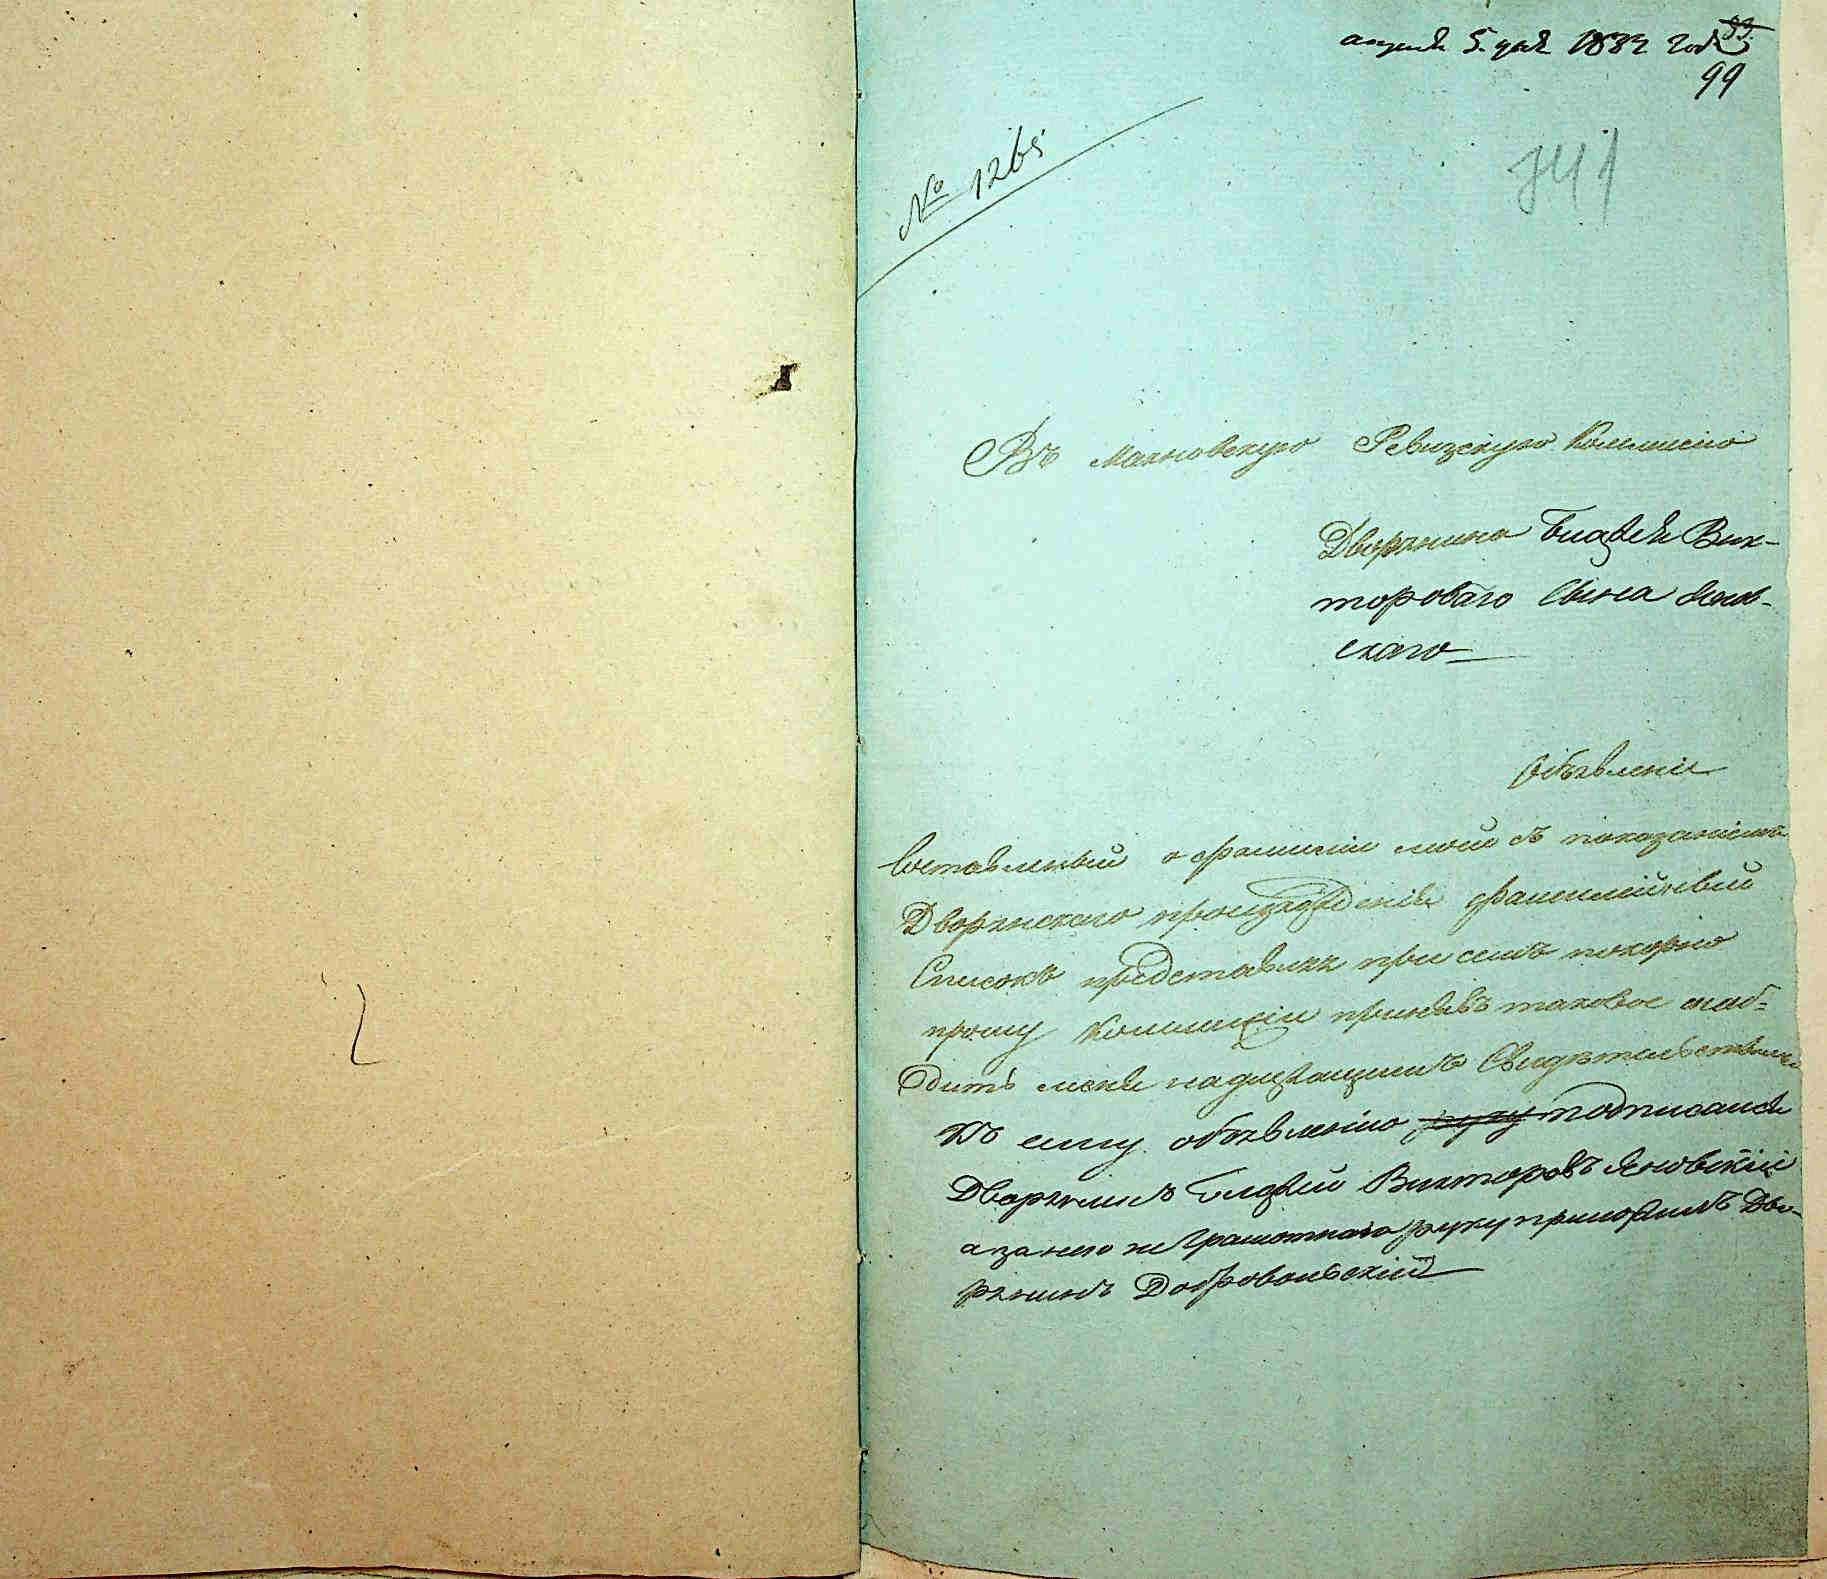 апреля 5. дня 1832 года
33.
99
№ 1265
Въ Махновскую Ревизскую Коммисію
Дворянина Блажея Вик-
тороваго Сына Янов-
скаго
Объявленіе
Составленый о фамиліи моей съ показаніемъ
Дворянскаго произхожденія фамилійный
Списокъ представляя при семъ покорно
прошу Коммисіи принявъ таковое снаб-
дить меня надлежащимъ Свидѣтельствомъ
Къ сему объявленію руку подписался
Дворянинъ Блажей Викторовъ Яновскій
а за него не грамотнаго руку приложилъ Дво-
рянинъ Добровольскій